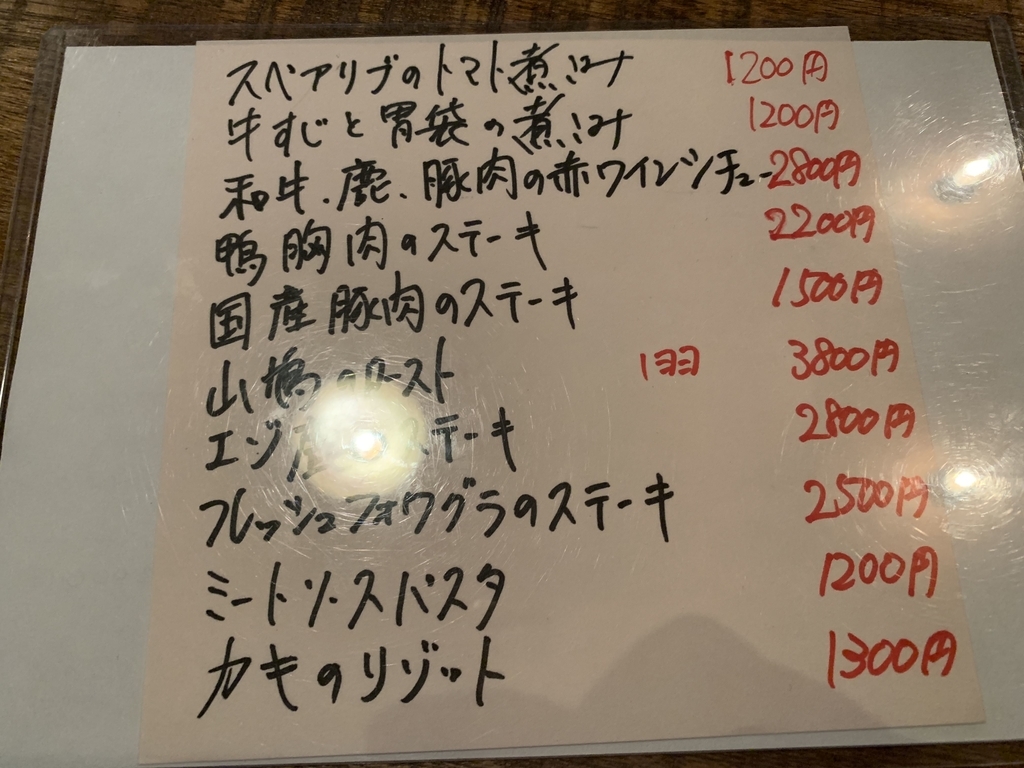 スペアリブのトマト煮コミ 1200円
牛すじと胃袋の煮コミ 1200円
和牛、鹿、豚肉の赤ワインシチュー 2800円
鴨胸肉のステーキ 2200円
国産豚肉のステーキ 1500円
山鳩のロースト 1羽 3800円
エゾ鹿 ステーキ 2800円
フレッシュフォワグラのステーキ 2500円
ミートソースパスタ 1200円
カキのリゾット 1300円